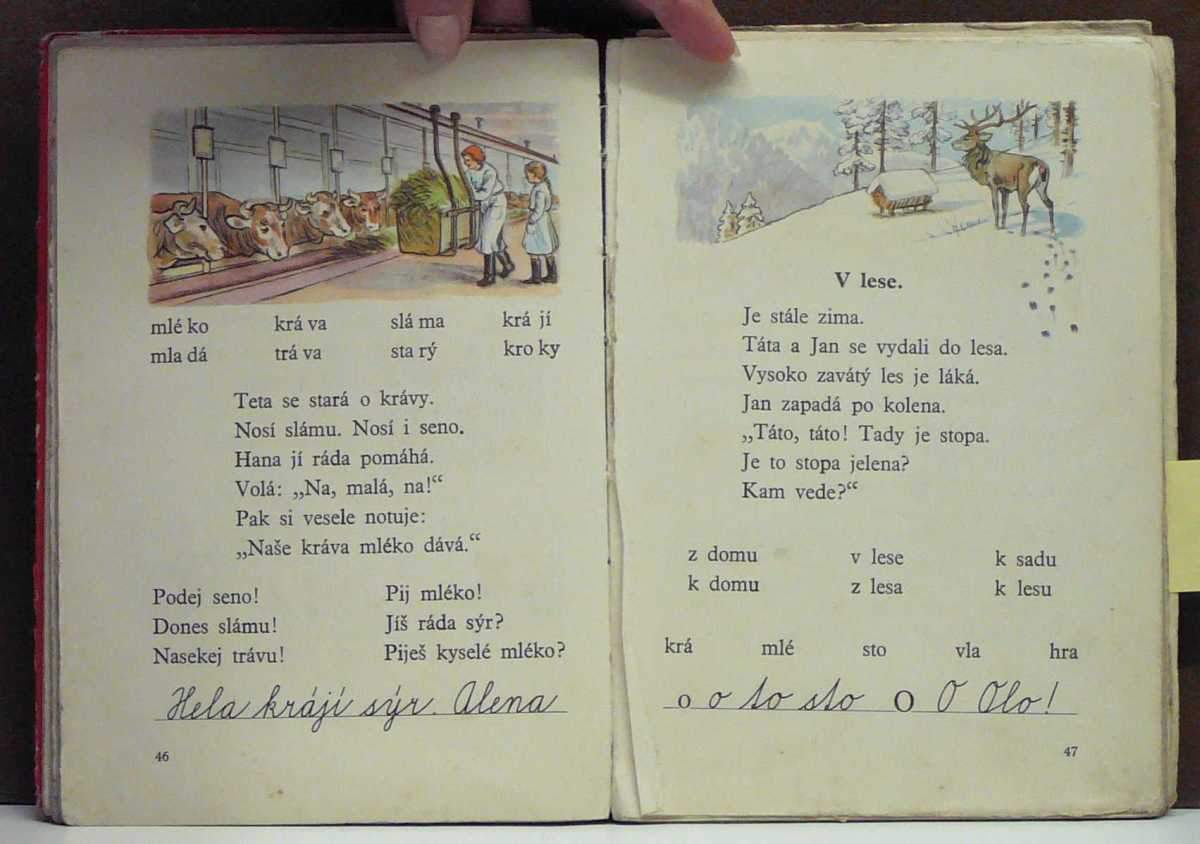 mlé ko krá va slá ma krá jí
mla dá trá va sta rý kro ky
Teta se stará o krávy.
Nosí slámu. Nosí i seno.
Hana jí ráda pomáhá.
Volá: „Na, malá, na!“
Pak si vesele notuje:
„Naše kráva mléko dává.“
Podej seno! Pij mléko!
Dones slámu! Jíš ráda sýr?
Nasekej trávu! Piješ kyselé mléko?
Hela krájí sýr. Alena
46
V lese.
Je stále zima.
Táta a Jan se vydali do lesa.
Vysoko zavátý les je láká.
Jan zapadá po kolena.
„Táto, táto! Tady je stopa.
Je to stopa jelena?
Kam vede?“
z domu v lese k sadu
k domu z lesa k lesu
krá mlé sto vla hra
o o to sto O O Olo!
47